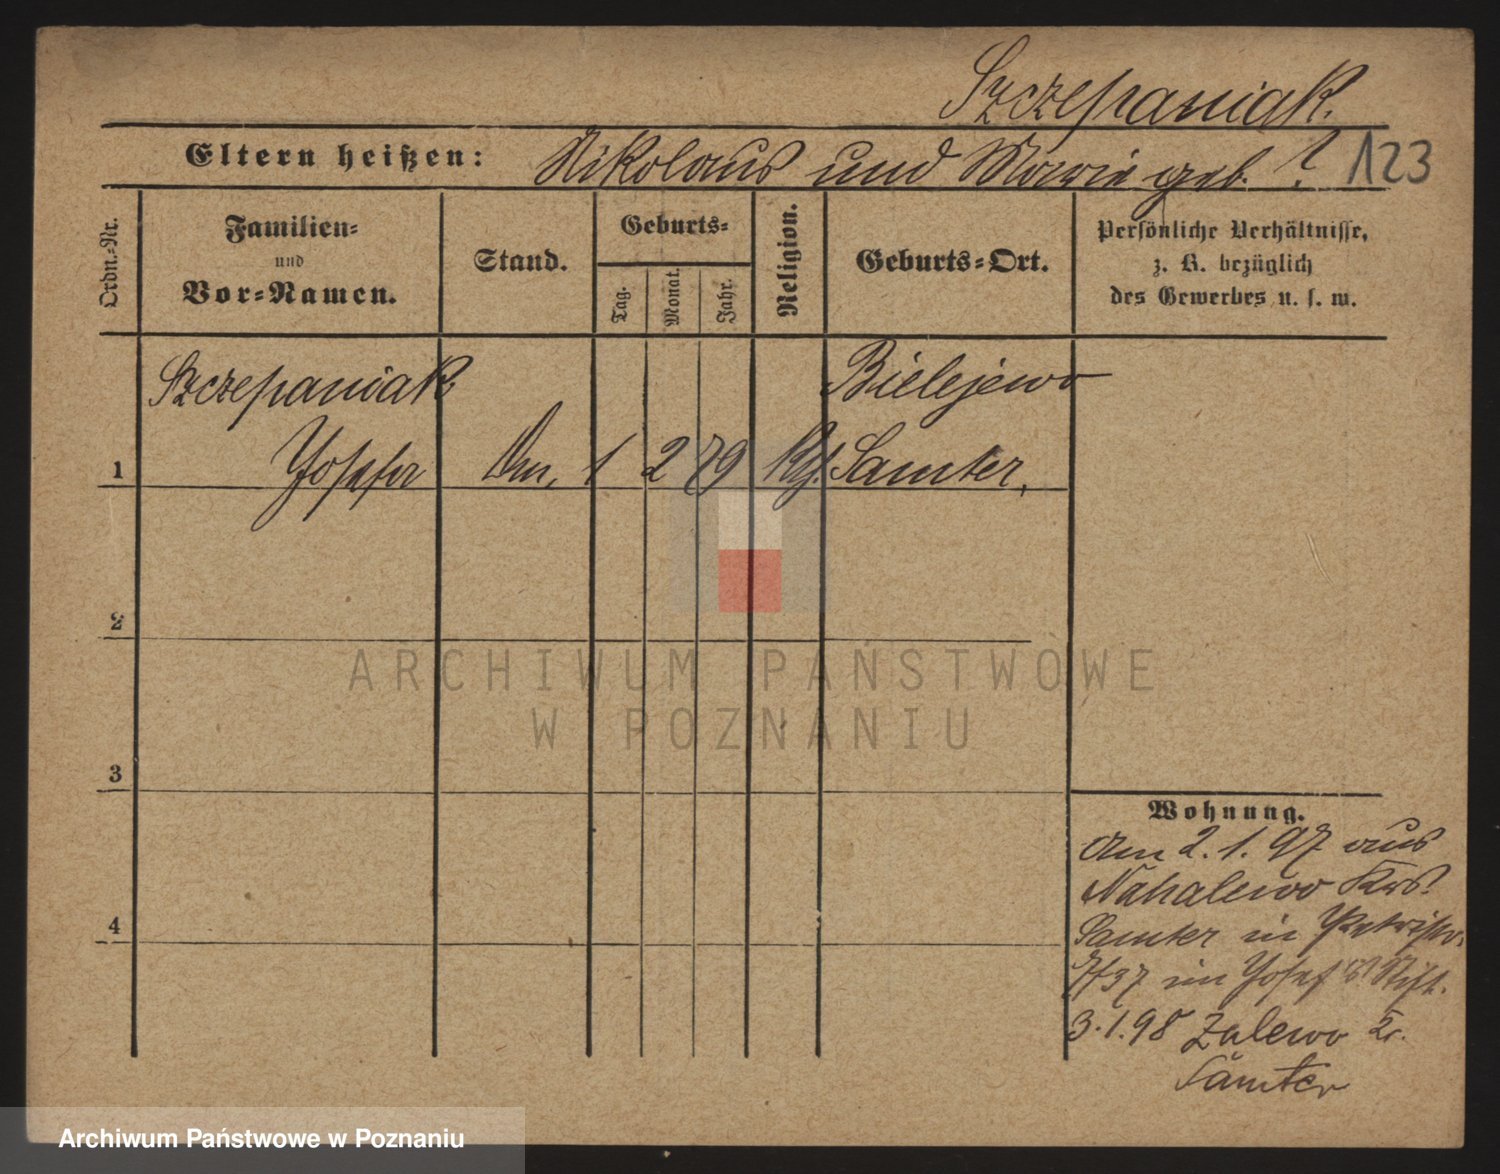 Szczepaniak.
Eltern heißen: Nikolaus und Marie geb. ? 123
Ordn.-Nr.
Familien-
und
Vor-Namen.
Stand.
Geburts-
Tag.
Monat.
Jahr.
Religion.
Geburts-Ort.
Persönliche Verhältnisse,
z. B. bezüglich
des Gewerbes u. s. w.
Szczepaniak Bielejewo
1 Josefa 1 2 79 Samter.
2
ARCHIWUM PAŃSTWOWE
W POZNANIU
3
4
Wohnung.
Am 2.1.97 aus
Krs.
Samter in
7/37 im Josef Stift.
3.1.98 Zalewo Kr.
Samter
Archiwum Państwowe w Poznaniu